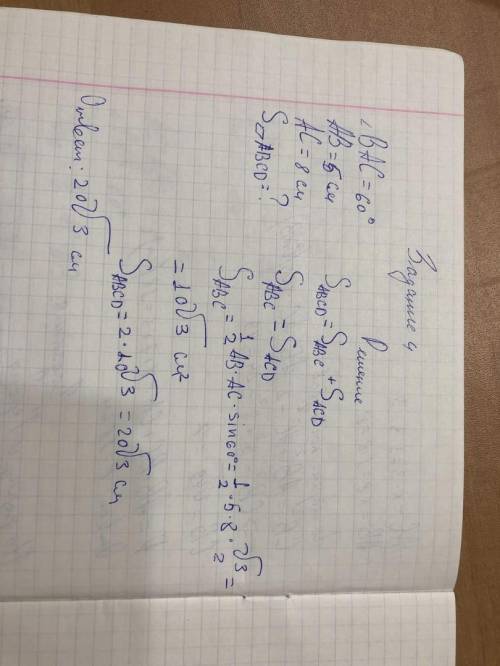 Задание 4
∠BAC = 60°
AB = 5 см
AC = 8 см
S▱ABCD = ?
Решение
SABCD = SABC + SACD
SABC = SACD
SABC = 1/2 AB · AC · sin60° = 1/2 · 5 · 8 · √3/2 =
= 10√3 см²
SABCD = 2 · 10√3 = 20√3 см
Ответ: 20√3 см